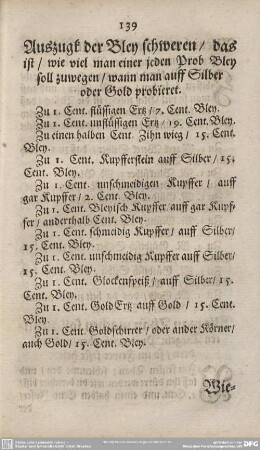 139
Auszugk der Bley schweren / das
ist / wie viel man einer jeden Prob Bley
soll zuwegen / wann man auff Silber
oder Gold probieret.
Zu 1. Cent. flüssigen Ertz / 7. Cent. Bley.
Zu 1. Cent. unflüssigen Ertz / 19. Cent. Bley.
Zu einen halben Cent. Zihn wieg / 15. Cent.
Bley.
Zu 1. Cent. Kupfferstein auff Silber / 15.
Cent. Bley.
Zu 1. Cent. unschmeidigen Kupffer / auff
gar Kupffer / 2. Cent. Bley.
Zu 1. Cent. Bleyisch Kupffer auff gar Kupf-
fer / anderthalb Cent. Bley.
Zu 1. Cent. schmeidig Kupffer / auff Silber /
15. Cent. Bley.
Zu 1. Cent. unschmeidig Kupffer auff Silber /
15. Cent. Bley.
Zu 1. Cent. Glockenspeiß / auff Silber / 15.
Cent. Bley.
Zu 1. Cent. Gold Ertz auff Gold / 15. Cent.
Bley.
Zu 1. Cent. Goldschirrer / oder ander Körner /
auch Gold / 15. Cent. Bley.
Wie-
DFG